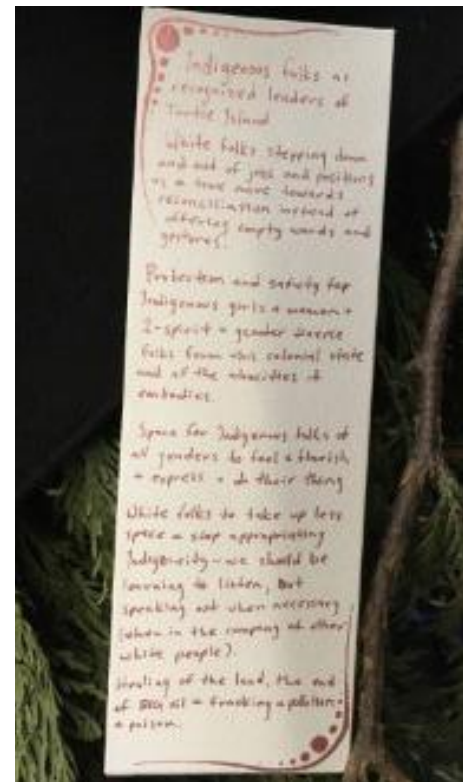 Indigenous folks as
recognized leaders of
Turtle Island
White folks stepping down
and out of jobs and positions
as a true move towards
reconciliation instead of
offering empty words and
gestures.
Protection and safety for
Indigenous girls + women +
2-spirit + gender diverse
folks from this colonial state
and all the atrocities it
embodies.
Space for Indigenous folks of
all genders to feel + flourish
+ express + do their thing
White folks to take up less
space + stop appropriating
Indigeneity - we should be
learning to listen, But
speaking out when necessary
(when in the company of other
white people).
Healing of the land, the end
of BIG oil + fracking + pollution
+ poison.